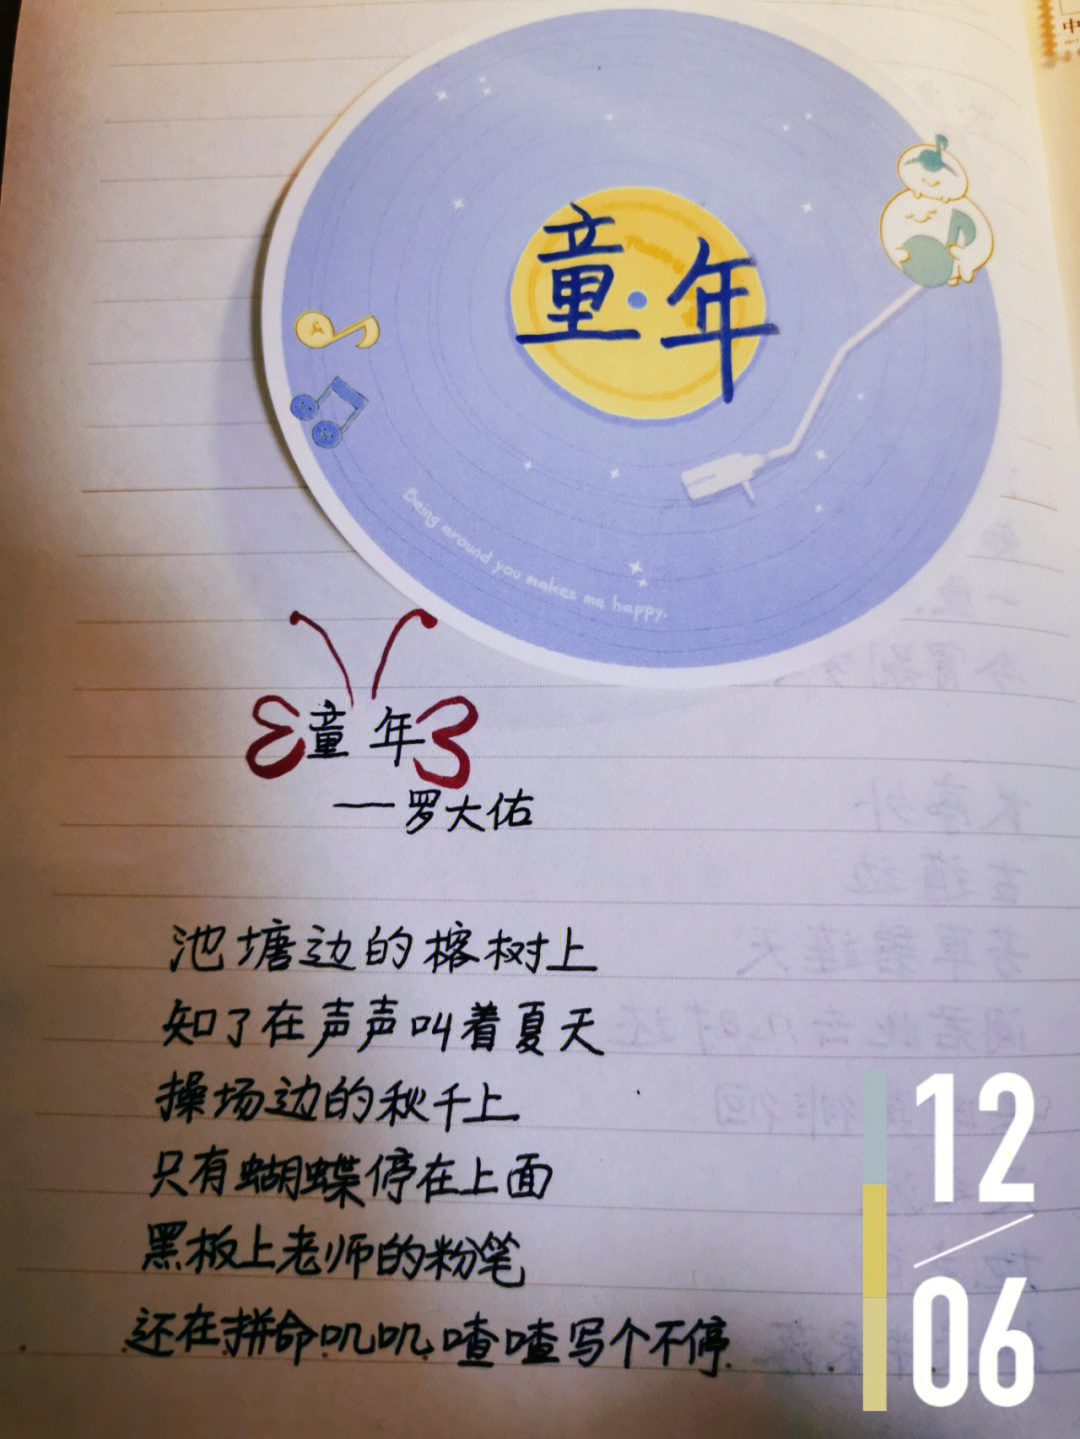 童年
Being around you makes me happy.
童年
——罗大佑
池塘边的榕树上
知了在声声叫着夏天
操场边的秋千上
只有蝴蝶停在上面
黑板上老师的粉笔
还在拼命叽叽喳喳写个不停
12
06